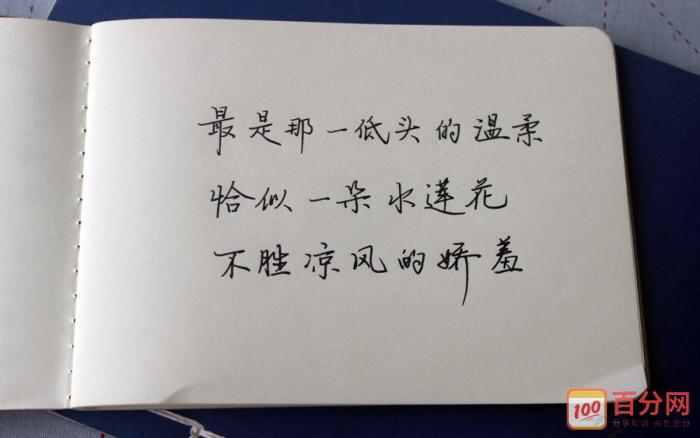 最是那一低头的温柔
恰似一朵水莲花
不胜凉风的娇羞
100 百分网
分享知识 共创百分